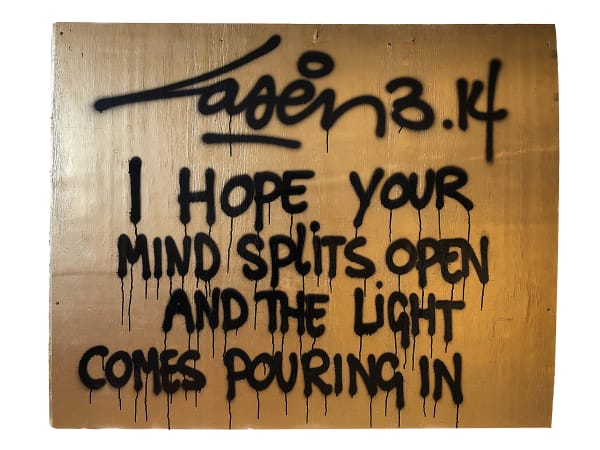 Laser 3.14
I HOPE YOUR
MIND SPLiTS OPEN
AND THE LiGHT
COMES POURING IN